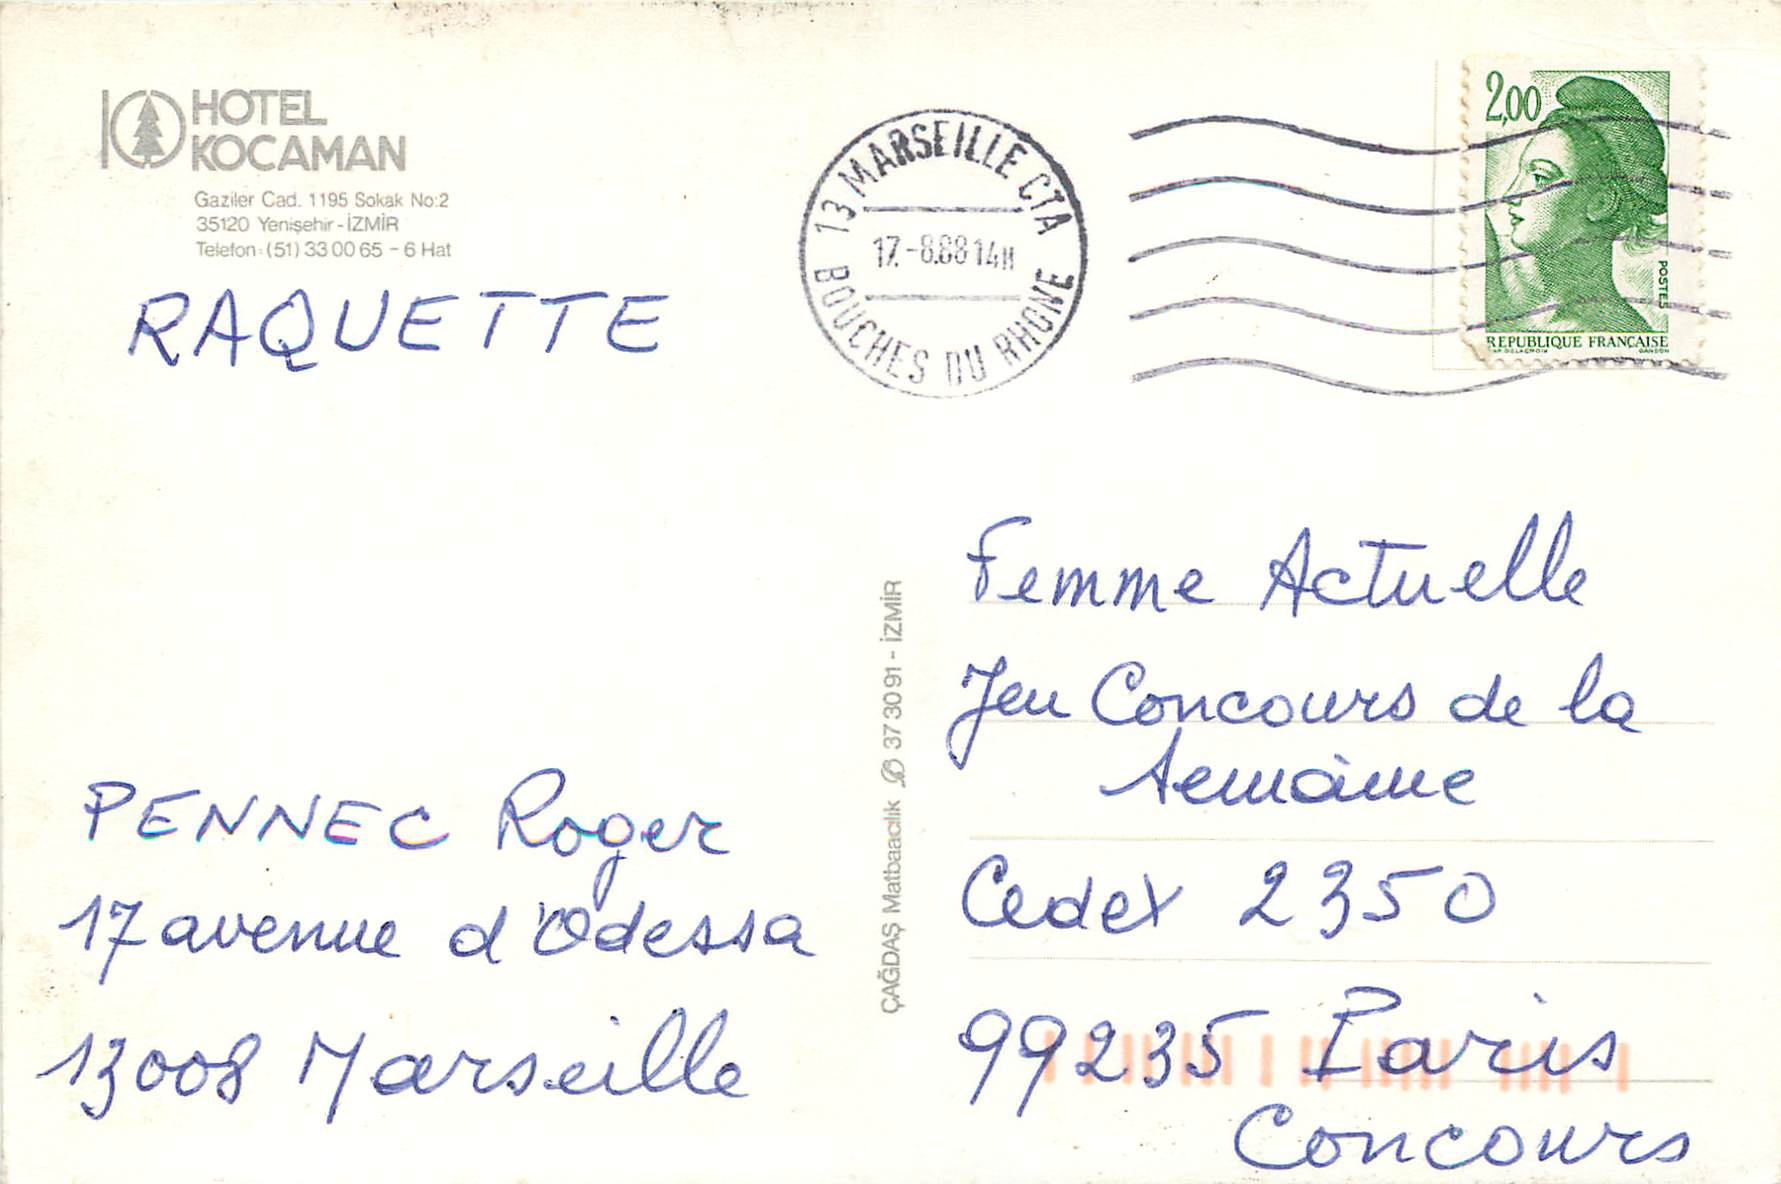 HOTEL
KOCAMAN
Gaziler Cad. 1195 Sokak No:2
35120 Yenişehir - İZMİR
Telefon: (51) 33 00 65 - 6 Hat
RAQUETTE
PENNEC Roger
17 avenue d'Odessa
13008 Marseille
ÇAĞDAŞ Matbaacılık 37 30 91 - İZMİR
13 MARSEILLE CTA
17-8.88 14H
BOUCHES DU RHONE
2,00
POSTES
REPUBLIQUE FRANÇAISE
AP. DELACROIX GANDON
Femme Actuelle
Jeu Concours de la
semaine
Cedex 2350
99235 Paris
Concours